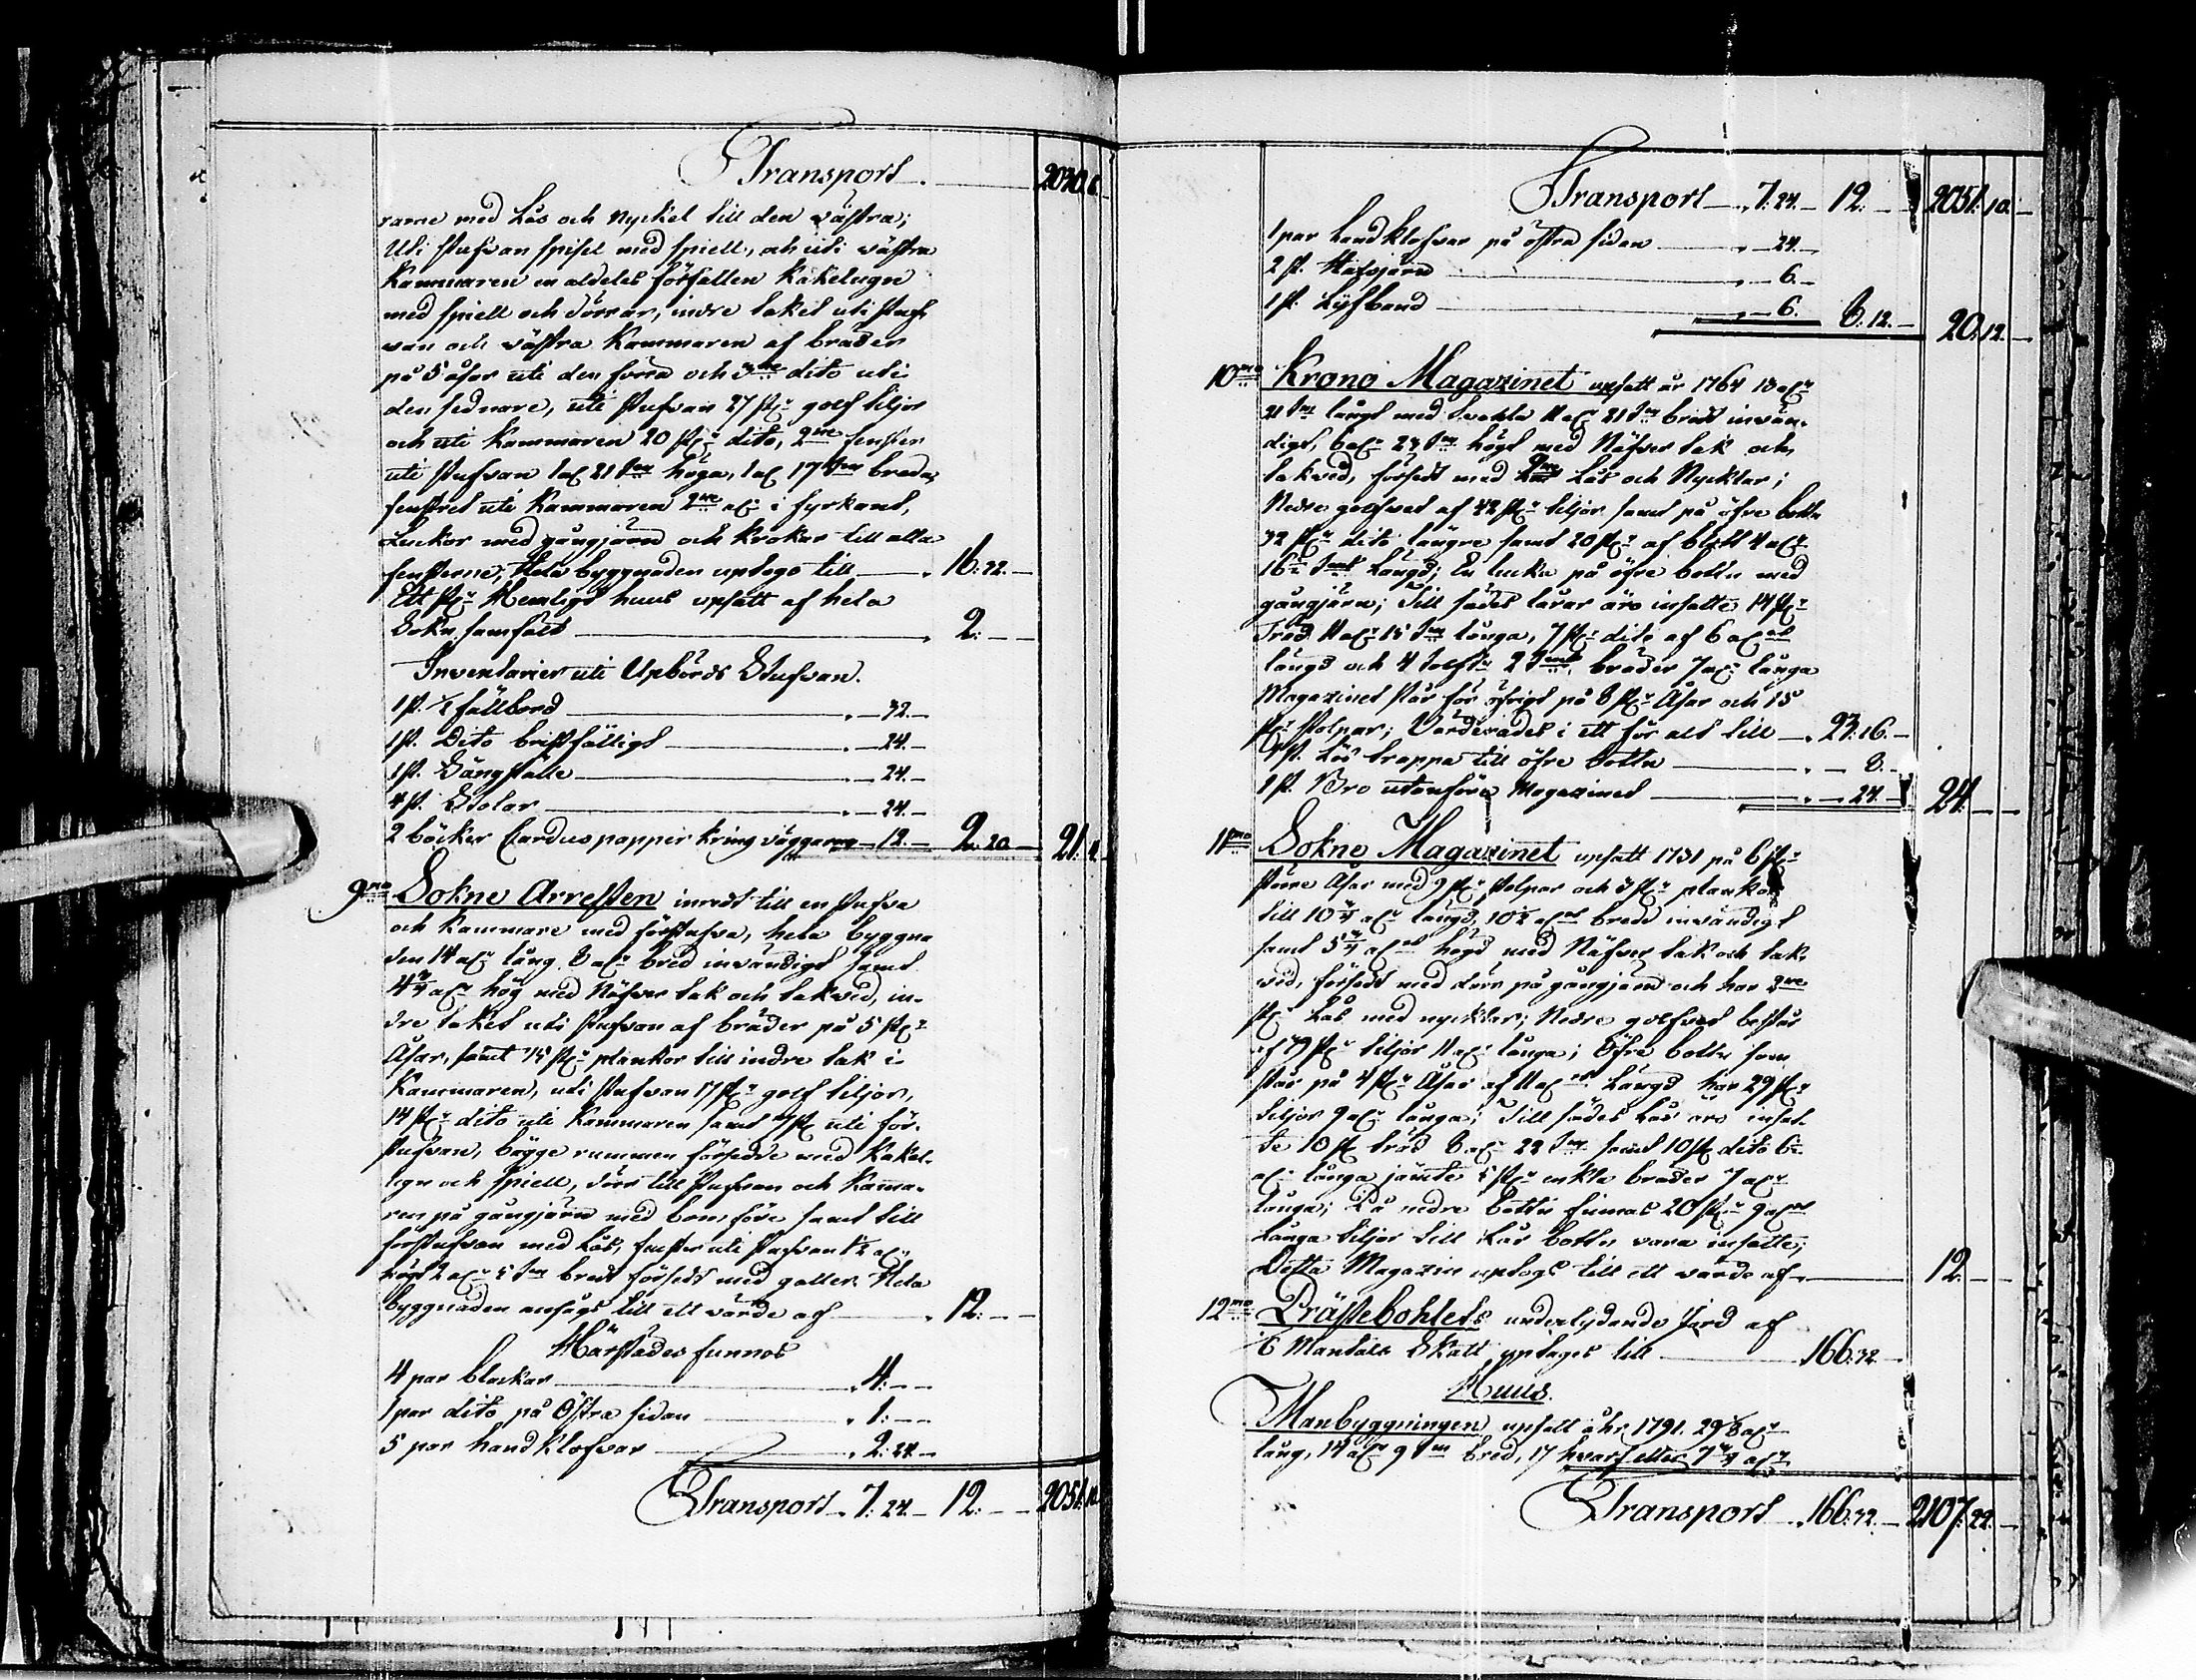 Transport. 2030. 6.
rarne med Lås och Nyckel till den västra;
Uti Stufvan spisel med spiell, och uti västra
Kammaren en aldeles förfallen Kakelugn
med spiell och dörrar, indre taket uti Stuf-
van och västra Kammaren af bräder
på 5 åsar uti den förra och 3ne dito uti
den sednare, uti Stufvan 27 st: golf tiljor
och uti Kammaren 20 st: dito, 2ne fenster
uti Stufvan 1 al: 21 tm höga, 1 al: 17 tm breda,
fenstret uti Kammaren 2ne al: i fyrkant,
Luckor med gångjärn och Krokar till alla
fensterne; Hela byggnaden uptogs till 16: 32.
Ett st: Hemligt huus upsatt af hela
Sokn samfält 2: —
Inventarier uti Upbörds Stufvan.
1 st. fällbord 32.
1 st. Dito bristfälligt 24.
1 st. Sängställe 24.
4 st. Stolar 24.
2 böcker Cardus papper kring väggarne 12. 2. 20 21. 4.
9no Sokne Arresten inredt till en Stufva
och Kammare med förstufva, hela byggna
den 14 al: lång 8 al: bred invändigt samt
4 3/4 al: hög med Näfver tak och takved, in-
dre taket uti Stufvan af bräder på 5 st:
Åsar, samt 15 st: plankor till indre tak i
Kammaren, uti Stufvan 17 st: golf tiljor,
14 st: dito uti Kammaren samt 7 st: uti för-
stufvan, bägge rummen försedde med Kakel-
ugn och spiell, dörr till Stufvan och Kamma-
ren på gångjärn med bom före samt till
förstufvan med Lås, fenster uti Stufvan 1 1/2 al:
högt 2 al: 5 tm bredt försedt med galler. Hela
byggnaden ansågs till ett värde af 12: —
Härstädes funnos
4 par blackar 4: —
1 par dito på Östra sidan 1: —
5 par handklofvar 2: 24.
Transport 7: 24. 12: — 2051. 10.
Transport 7: 24. 12: — 2051. 10.
1 par handklofvar på östra sidan 24.
2 st. Hafsjärn 6.
1 st. Lijsband 6. 8. 12. 20. 12.
10mo Krono Magazinet upsatt år 1764 13 al:
21 tm långt med 11 al: 21 tm bredt invän-
digt, 6 al: 23 tm högt med Näfver tak och
takved, försedt med 2ne Lås och Nycklar;
Nedre golfvet af 42 st: tiljor samt på öfre bottn
32 st: dito längre samt 20 st: af blott 4 al:
16 tms längd; En lucka på öfre bottn med
gångjärn; Till sädes lårar äro insatte 14 st:
Träd 11 al: 15 tm långa, 7 st: dito af 6 al:
längd och 4 tolfter 2 tums bräder 7 al: långa
Magazinet står för öfrigt på 8 st: Åsar och 15
st: Stolpar; Värderades i ett för alt till 23: 16.
1 st. Lös trappa till öfre bottn 8.
1 st. Bro utanföre Magazinet 24. 24. —
11mo Sokne Magazinet upsatt 1731 på 6 st:
större Åsar med 9 st: stolpar och 3 st: plankor
till 10 3/4 al: längd, 10 1/2 al: bredd invändigt
samt 5 3/4 al: högd med Näfver tak och tak-
ved, försedt med dörr på gångjärn och har 2ne
st: Lås med nycklar; Nedre golfvet består
af 39 st: tiljor 11 al: långa; Öfre bottn som
står på 4 st: Åsar af 11 al: längd har 29 st:
tiljor 9 al: långa; Till sädes Lår äro insat-
te 10 st: träd 8 al: 22 tm samt 10 st: dito 6
al: långa jämte 5 st: enkla bräder 7 al:
långa; På nedre bottn finnas 20 st: 9 al:
långa tiljor till Lår bottn vara insatte;
Detta Magazin uptogs till ett värde af 12. —
12mo Prästebohlets underlydande Jord af
Mantals Skatt uptages till 166: 32.
Huus.
Manbyggningen upsatt åhr 1791. 29 al:
lång, 14 al: 9 tm bred, 17 hvarf eller 7 3/4 al:
Transport 166: 32. 2107. 22.